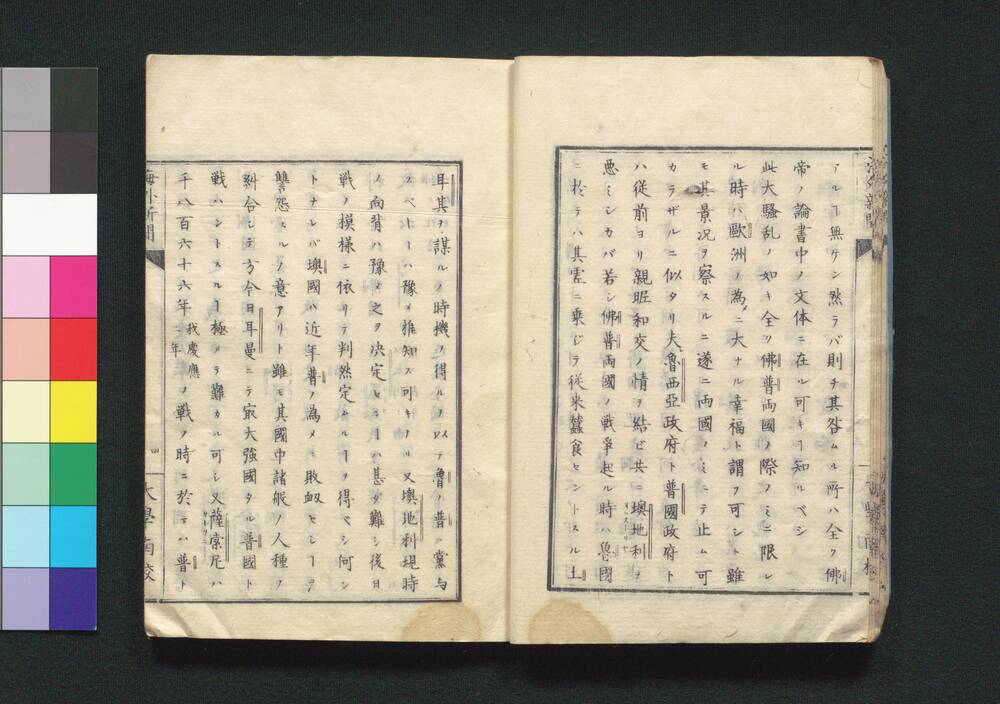 アルヿ無ケン然ラバ則チ其咎ムル所ハ全ク佛
帝ノ論書中ノ文体ニ在ル可キヿ知ルベシ
此大騒乱ノ如キ全ク佛普両國ノ際ノミニ限レ
ル時ハ歐洲ノ為メニ大ナル幸福ト謂フ可シト雖
モ其景况ヲ察スルニ遂ニ両國ノミニテ止ム可
カラザルニ似タリ夫魯西亞政府ト普國政府ト
ハ従前ヨリ親昵和交ノ情ヲ結ビ共ニ墺地利ヲ
悪ミシカバ若シ佛普両國ノ戦爭起ル時ハ魯國
ニ於テハ其虚ニ乗ジテ従来蠶食セントスル土
耳其ヲ謀ルノ時機ヲ得ルヲ以テ魯ノ普ニ黨与
スベキヿハ豫メ推知ス可キナリ又墺地利現時
ノ向背ハ豫メ之ヲ决定セシヿハ甚ダ難シ後日
戦ノ模様ニ依リテ判然定ムルヿヲ得ベシ何ン
トナレバ墺國ハ近年普ノ為メニ敗衂セシヿヲ
讐怨スルノ意アリト雖モ其國中諸般ノ人種ヲ
糾合シテ方今日耳曼ニテ寂大強國タル普國ト
戦ハントスルヿ極メテ難カル可シ又薩索尼ハ
千八百六十六年我慶應二年ノ戦ノ時ニ於テハ普ト
海外新聞
四
大學南校